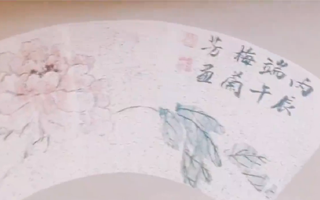 丙辰
端午
梅蘭
芳画